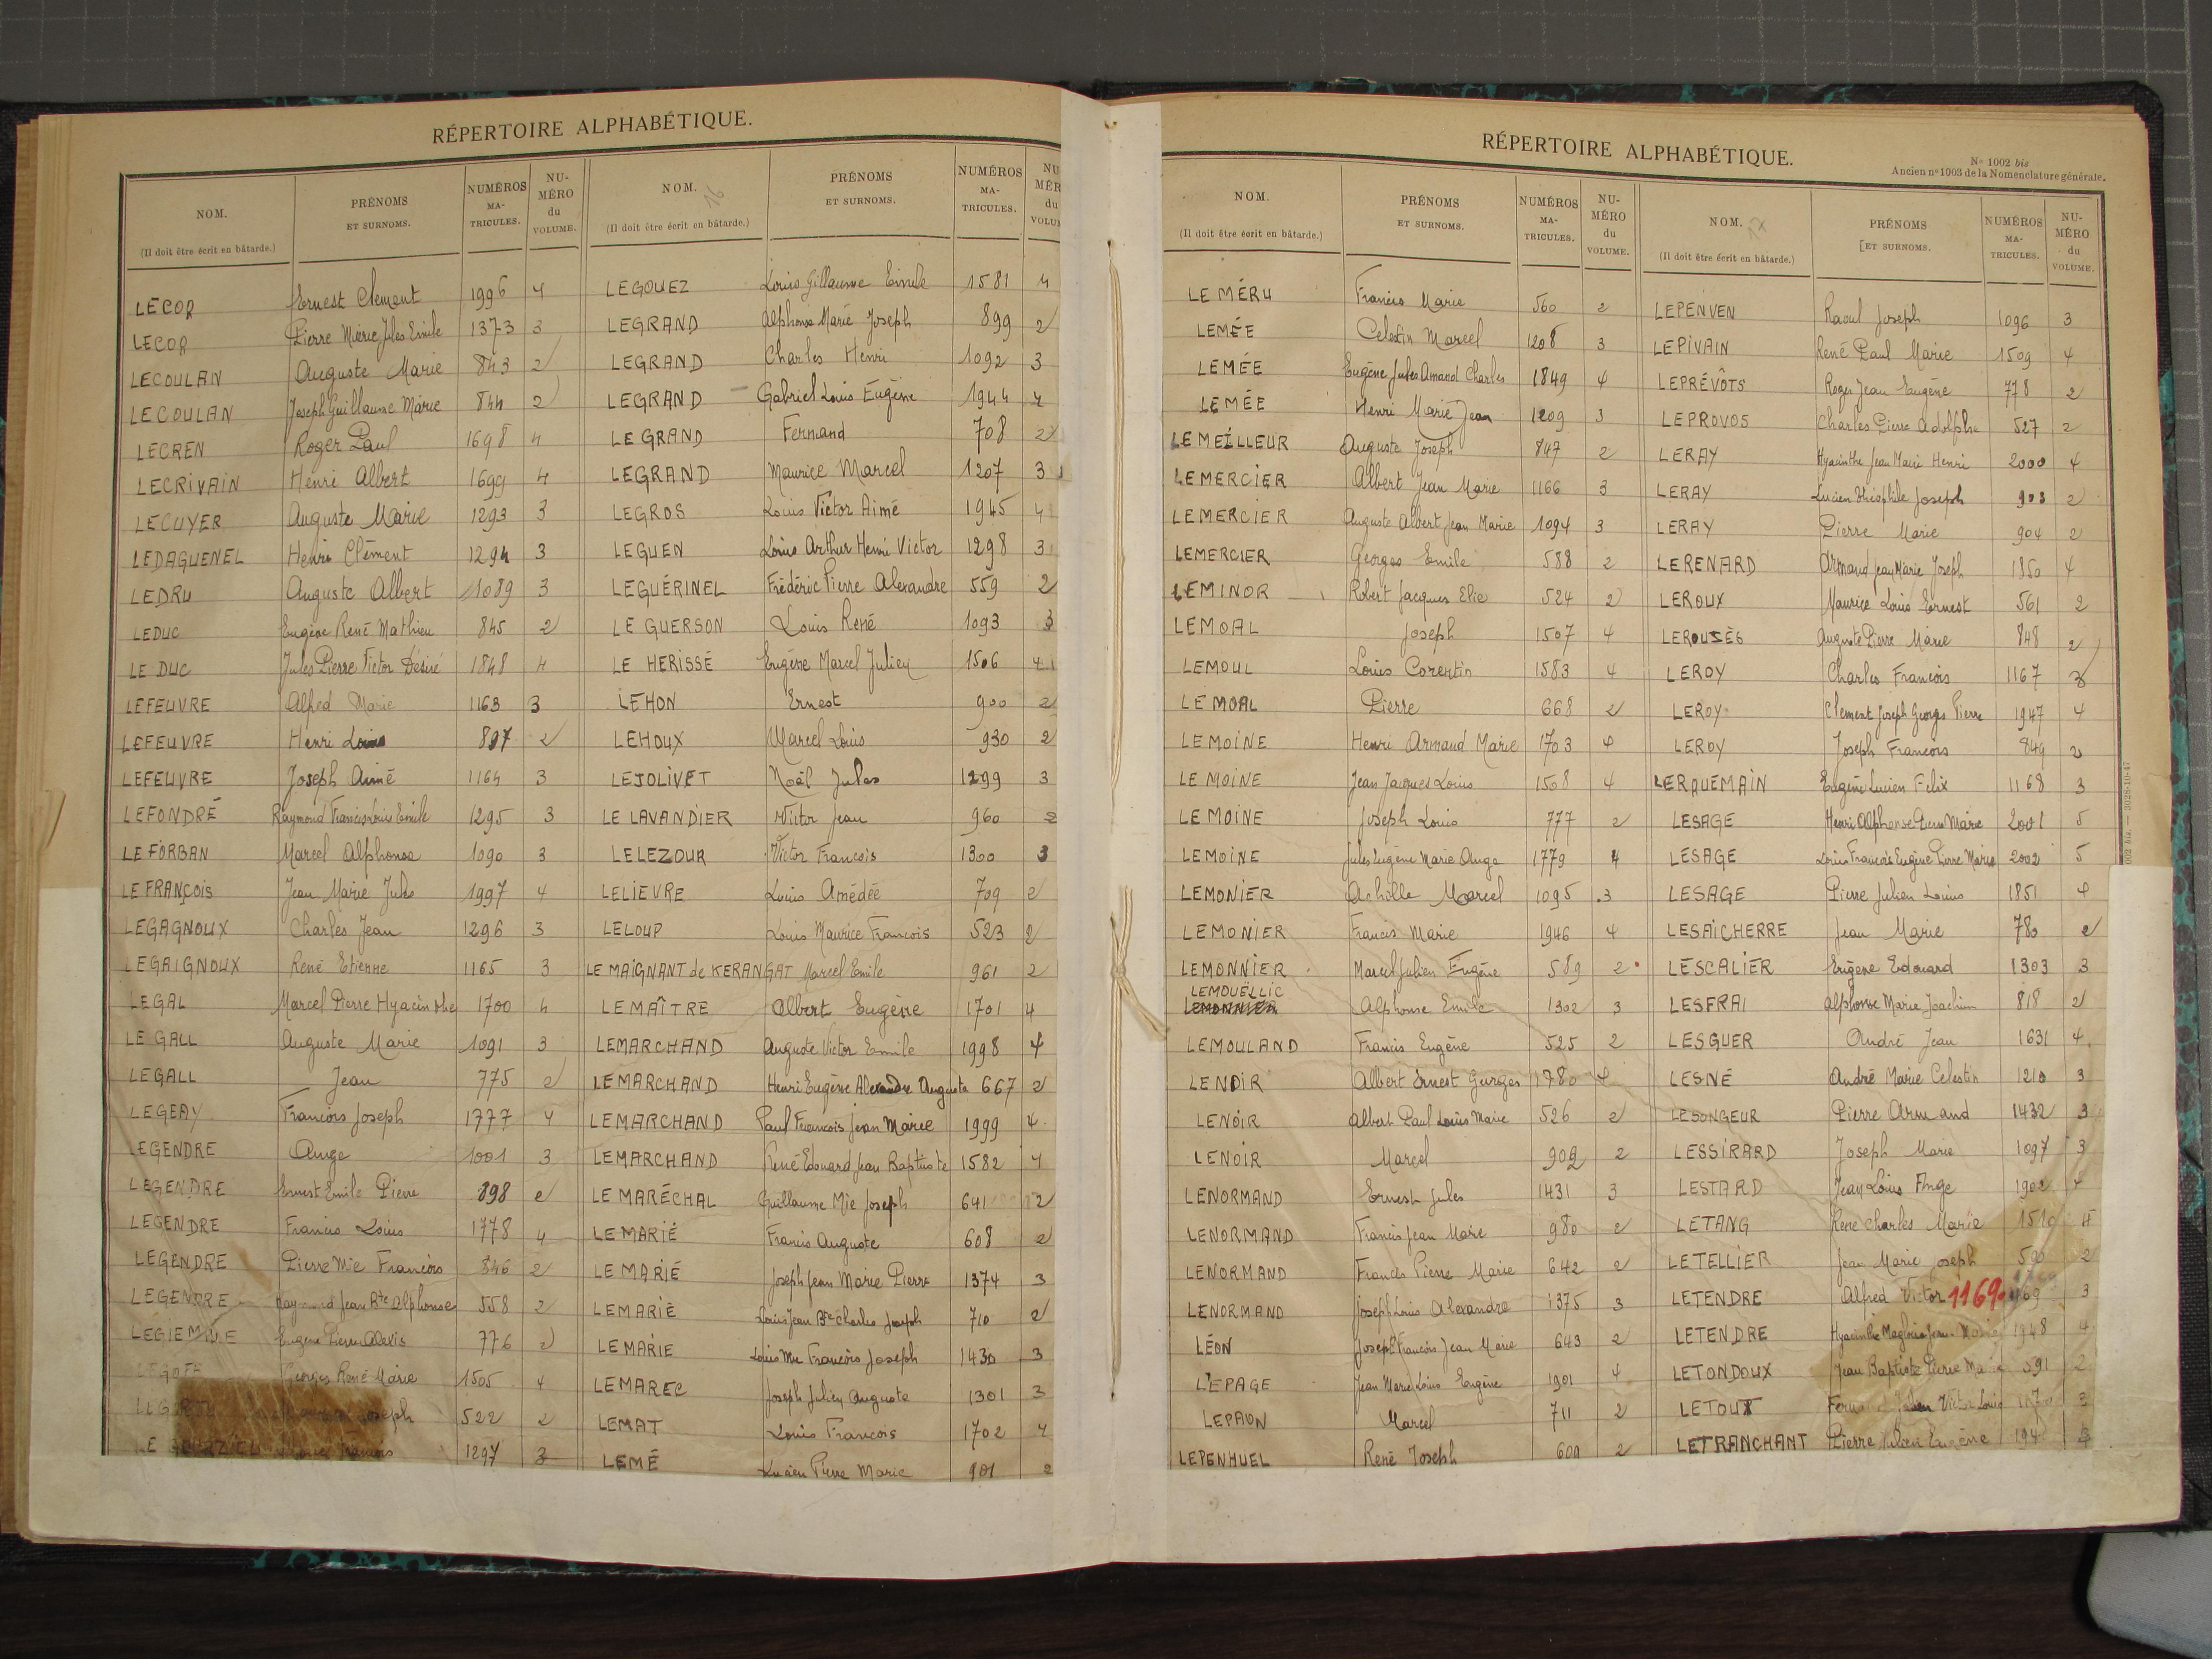 RÉPERTOIRE ALPHABÉTIQUE.
NOM. (Il doit être écrit en bâtarde.) PRÉNOMS ET SURNOMS. NUMÉROS MA-TRICULES. NU-MÉRO du VOLUME.
LECOR Ernest Clement 1996 4
LECOR Pierre Marie Jules Emile 1373 3
LECOULAN Auguste Marie 843 2
LECOULAN Joseph Guillaume Marie 844 2
LECREN Roger Paul 1698 4
LECRIVAIN Henri Albert 1699 4
LECUYER Auguste Marie 1293 3
LEDAGUENEL Henri Clément 1294 3
LEDRU Auguste Albert 1089 3
LEDUC Eugène René Mathieu 845 2
LE DUC Jules Pierre Victor Désiré 1848 4
LEFEUVRE Alfred Marie 1163 3
LEFEUVRE Henri Louis 897 2
LEFEUVRE Joseph Aimé 1164 3
LEFONDRÉ Raymond Francis Louis Emile 1295 3
LE FORBAN Marcel Alphonse 1090 3
LE FRANÇOIS Jean Marie Jules 1997 4
LEGAGNOUX Charles Jean 1296 3
LEGAIGNOUX René Etienne 1165 3
LEGAL Marcel Pierre Hyacinthe 1700 4
LE GALL Auguste Marie 1091 3
LEGALL Jean 775 2
LEGEAY François Joseph 1777 4
LEGENDRE Ange 1001 3
LEGENDRE Ernest Emile Pierre 898 2
LEGENDRE Francis Louis 1778 4
LEGENDRE Pierre Mie François 846 2
LEGENDRE Raymond Jean Bte Alphonse 558 2
Eugène Pierre Alexis 776 2
Georges René Marie 1505 4
Joseph 522 2
François 1297 3
NOM. 16 (Il doit être écrit en bâtarde.) PRÉNOMS ET SURNOMS. NUMÉROS MA-TRICULES. NU MÉR du VOLUM
LEGOUEZ Louis Gillaume Emile 1581 4
LEGRAND Alphonse Marie Joseph 899 2
LEGRAND Charles Henri 1092 3
LEGRAND Gabriel Louis Eugène 1944 4
LE GRAND Fernand 708 2
LEGRAND Maurice Marcel 1207 3
LEGROS Louis Victor Aimé 1945 4
LEGUEN Louis Arthur Henri Victor 1298 3
LEGUÉRINEL Frédéric Pierre Alexandre 559 2
LE GUERSON Louis René 1093 3
LE HERISSÉ Eugène Marcel Julien 1506 4
LEHON Ernest 900 2
LEHOUX Marcel Louis 930 2
LEJOLIVET Noël Jules 1299 3
LE LAVANDIER Victor Jean 960 2
LELEZOUR Victor François 1300 3
LELIEVRE Louis Amédée 709 2
LELOUP Louis Maurice Francois 523 2
LE MAIGNANT de KERANGAT Marcel Emile 961 2
LEMAÎTRE Albert Eugène 1701 4
LEMARCHAND Auguste Victor Emile 1998 4
LEMARCHAND Henri Eugène Alexandre Auguste 667 2
LEMARCHAND Paul François Jean Marie 1999 4
LEMARCHAND René Edouard Jean Baptiste 1582 4
LE MARÉCHAL Guillaume Mie Joseph 641 2
LE MARIÉ Francis Auguste 608 2
LE MARIÉ Joseph Jean Marie Pierre 1374 3
LEMARIÉ Louis Jean Bte Charles Joseph 710 2
LE MARIE Louis Mie François Joseph 1430 3
LEMAREC Joseph Julien Auguste 1301 3
LEMAT Louis François 1702 4
LEMÉ Lucien Pierre Marie 901 2
RÉPERTOIRE ALPHABÉTIQUE.
No 1002 bis
Ancien no 1003 de la Nomenclature générale.
NOM. (Il doit être écrit en bâtarde.) PRÉNOMS ET SURNOMS. NUMÉROS MA-TRICULES. NU-MÉRO du VOLUME.
LE MÉRU Francis Marie 560 2
LEMÉE Celestin Marcel 1208 3
LEMÉE Eugène Jules Amand Charles 1849 4
LEMÉE Henri Marie Jean 1209 3
LEMEILLEUR Auguste Joseph 847 2
LEMERCIER Albert Jean Marie 1166 3
LEMERCIER Auguste Albert Jean Marie 1094 3
LEMERCIER Georges Emile 588 2
LEMINOR Robert Jacques Elie 524 2
LEMOAL Joseph 1507 4
LEMOUL Louis Corentin 1583 4
LE MOAL Pierre 668 2
LEMOINE Henri Armand Marie 1703 4
LE MOINE Jean Jacques Louis 1508 4
LE MOINE Joseph Louis 777 2
LEMOINE Jules Eugène Marie Ange 1779 4
LEMONIER Achille Marcel 1095 3
LEMONIER Francis Marie 1946 4
LEMONNIER Marcel Julien Eugène 589 2
LEMOUËLLIC
LEMONNIER Alphonse Emile 1302 3
LEMOULAND Francis Eugène 525 2
LENOIR Albert Ernest Gorges 1780 4
LENOIR Albert Paul Louis Marie 526 2
LENOIR Marcel 902 2
LENORMAND Ernest Jules 1431 3
LENORMAND Francis Jean Marie 980 2
LENORMAND Francis Pierre Marie 642 2
LENORMAND Joseph Louis Alexandre 1375 3
LÉON Joseph François Jean Marie 643 2
L'EPAGE Jean Marie Louis Eugène 1901 4
LEPAON Marcel 711 2
LEPENHUEL René Joseph 600 2
NOM. 17 (Il doit être écrit en bâtarde.) PRÉNOMS ET SURNOMS. NUMÉROS MA-TRICULES. NU-MÉRO du VOLUME.
LEPENVEN Raoul Joseph 1096 3
LEPIVAIN René Paul Marie 1509 4
LEPRÉVÔTS Roger Jean Eugène 778 2
LEPROVOS Charles Pierre Adolphe 527 2
LERAY Hyacinthe Jean Marie Henri 2000 4
LERAY Lucien Théophile Joseph 903 2
LERAY Pierre Marie 904 2
LERENARD Armand Jean Marie Joseph 1850 4
LEROUX Maurice Louis Ernest 561 2
Auguste Pierre Marie 848 2
LEROY Charles François 1167 3
LEROY Clement Joseph Georges Pierre 1947 4
LEROY Joseph Francois 849 2
LERQUEMAIN Eugène Lucien Félix 1168 3
LESAGE Henri Alphonse Pierre Marie 2001 5
LESAGE Louis François Eugène Pierre Marie 2002 5
LESAGE Pierre Julien Louis 1851 4
LESAICHERRE Jean Marie 780 2
LESCALIER Eugène Edouard 1303 3
LESFRAI Alphonse Marie Joachim 818 2
LESGUER André Jean 1631 4
LESNÉ André Marie Celestin 1210 3
LESONGEUR Pierre Armand 1432 3
LESSIRARD Joseph Marie 1097 3
LESTARD Jean Louis Ange 1902 4
LETANG René Charles Marie 1510 4
LETELLIER Jean Marie Joseph 590 2
LETENDRE Alfred Victor 1169 3
LETENDRE Hyacinthe Magloire Jean Marie 1948 4
LETONDOUX Jean Baptiste Pierre Marie 591 2
LETOUT Victor Louis 3
LETRANCHANT Pierre Julien Eugène